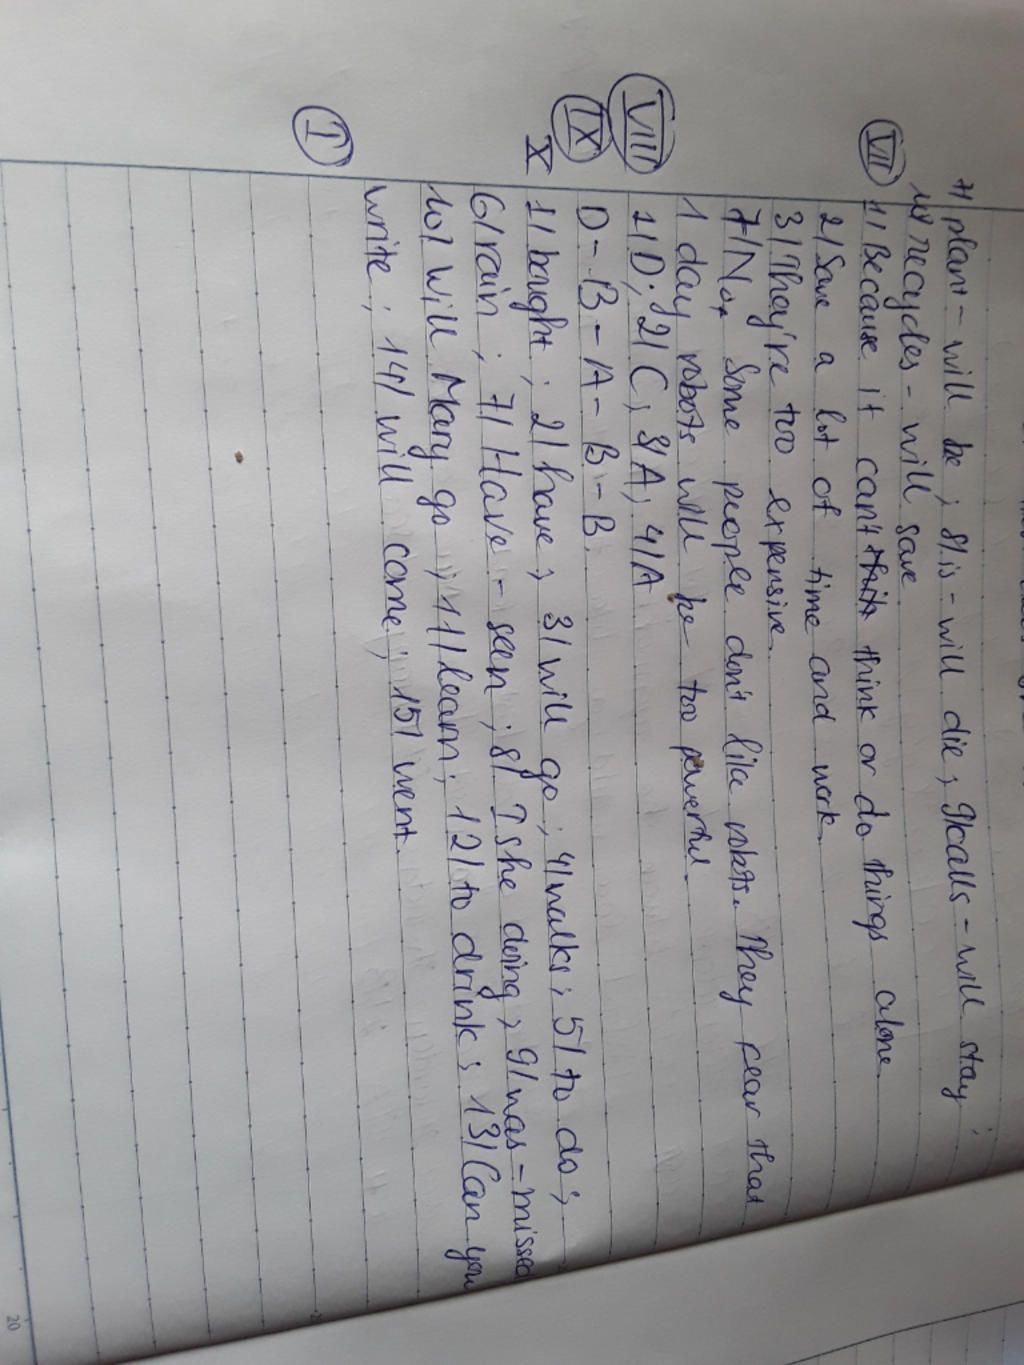 7/ plant - will be ; 8/ is - will die ; 9/ calls - will stay ;
10/ recycles - will save
VII 1/ Because it can't think or do things alone
2/ Save a lot of time and work
3/ They're too expensive.
7/ No, Some people don't like robots. They fear that
1 day robots will be too powerful.
VIII 1/ D ; 2/ C ; 3/ A ; 4/ A
IX D - B - A - B - B
X 1/ bought ; 2/ have ; 3/ will go ; 4/ walks ; 5/ to do ;
6/ rain ; 7/ Have - seen ; 8/ she doing ; 9/ was - missed
10/ will Mary go ; 11/ learn ; 12/ to drink ; 13/ Can you
write ; 14/ will come ; 15/ went.
I
20